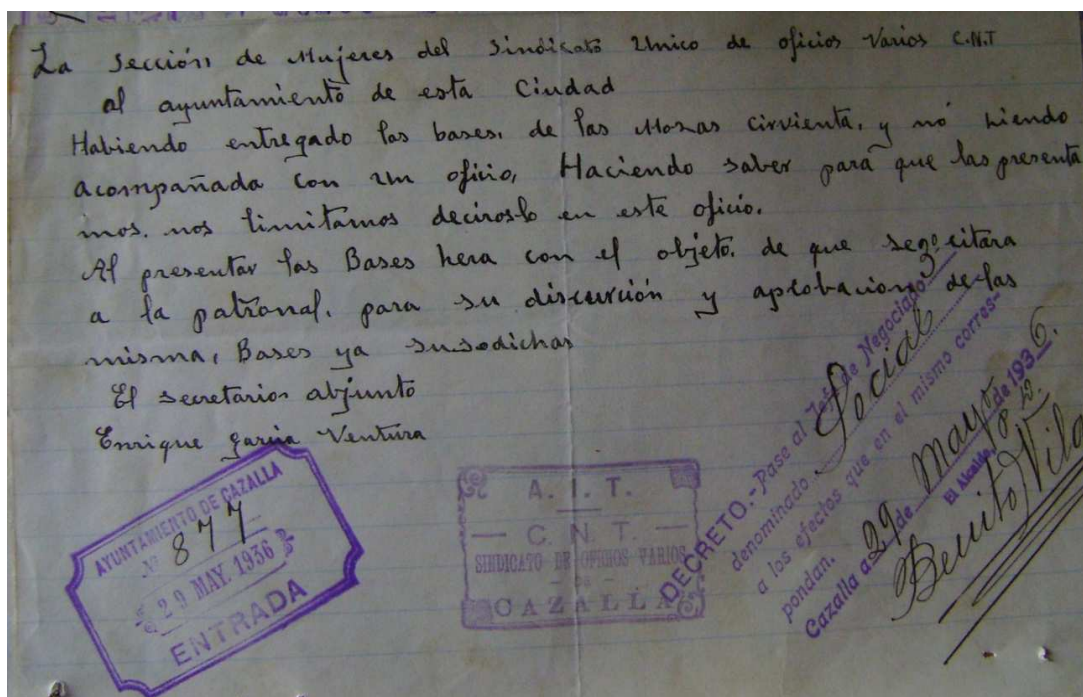 La Sección de Mujeres del Sindicato Unico de oficios Varios C.N.T
al ayuntamiento de esta Ciudad
Habiendo entregado las bases, de las Mozas cirvienta, y nó siendo
acompañada con un oficio, Haciendo saber para que las presenta
mos, nos limitamos deciroslo en este oficio.
Al presentar las Bases hera con el objeto, de que se citara
a la patronal, para su discurción y aprobacion de las
misma, Bases ya susodichas
El secretario abjunto
Enrique Garcia Ventura
AYUNTAMIENTO DE CAZALLA
Nº 877
29 MAY. 1936
ENTRADA
A. I. T.
C. N. T.
SINDICATO DE OFICIOS VARIOS
DE
CAZALLA
DECRETO.- Pase al Jefe de Negociado 3º
denominado Social
a los efectos que en el mismo corres-
pondan.
Cazalla a 29 de Mayo de 1936.
El Alcalde,
Benito Vila